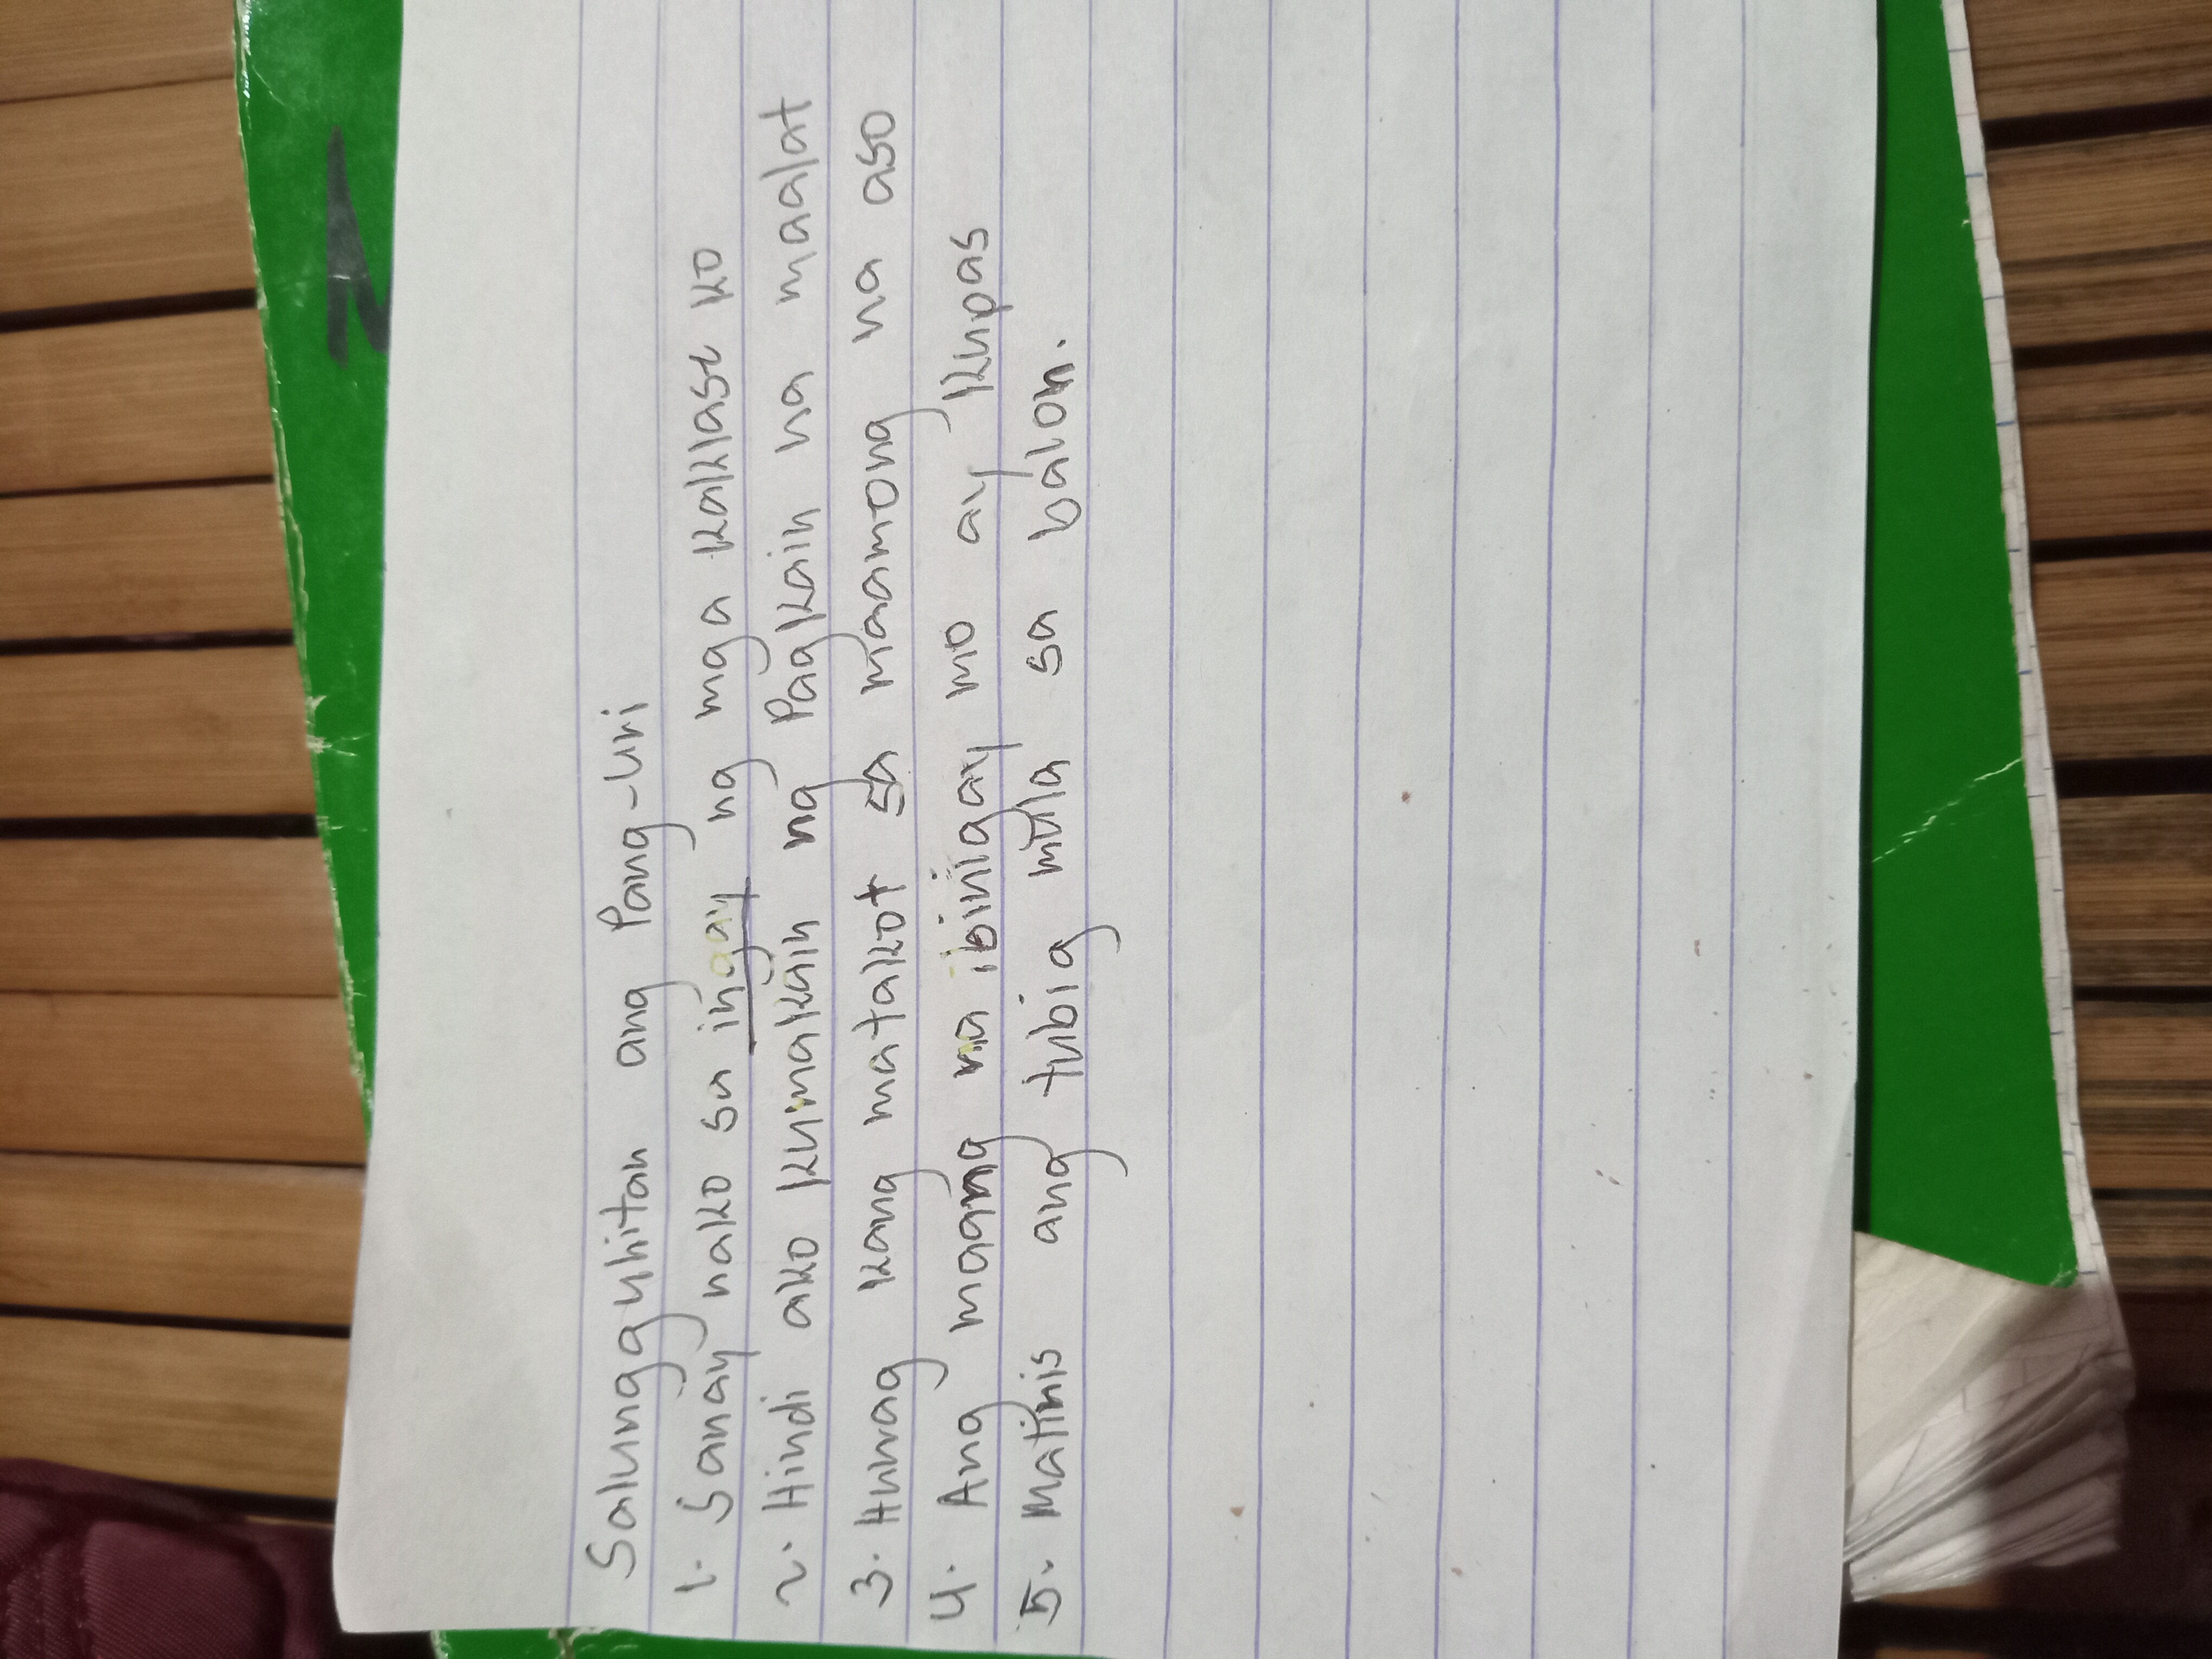 Salungguhitan ang Pang-Uri
1. Sanay nako sa ingay ng mga kaklase ko
2. Hindi ako kumakain ng Pagkain na maalat
3. Huwag kang matakot sa maamong na aso
4. Ang maang na ibinigay mo ay kupas
5. Matinis ang tubig mula sa balon.